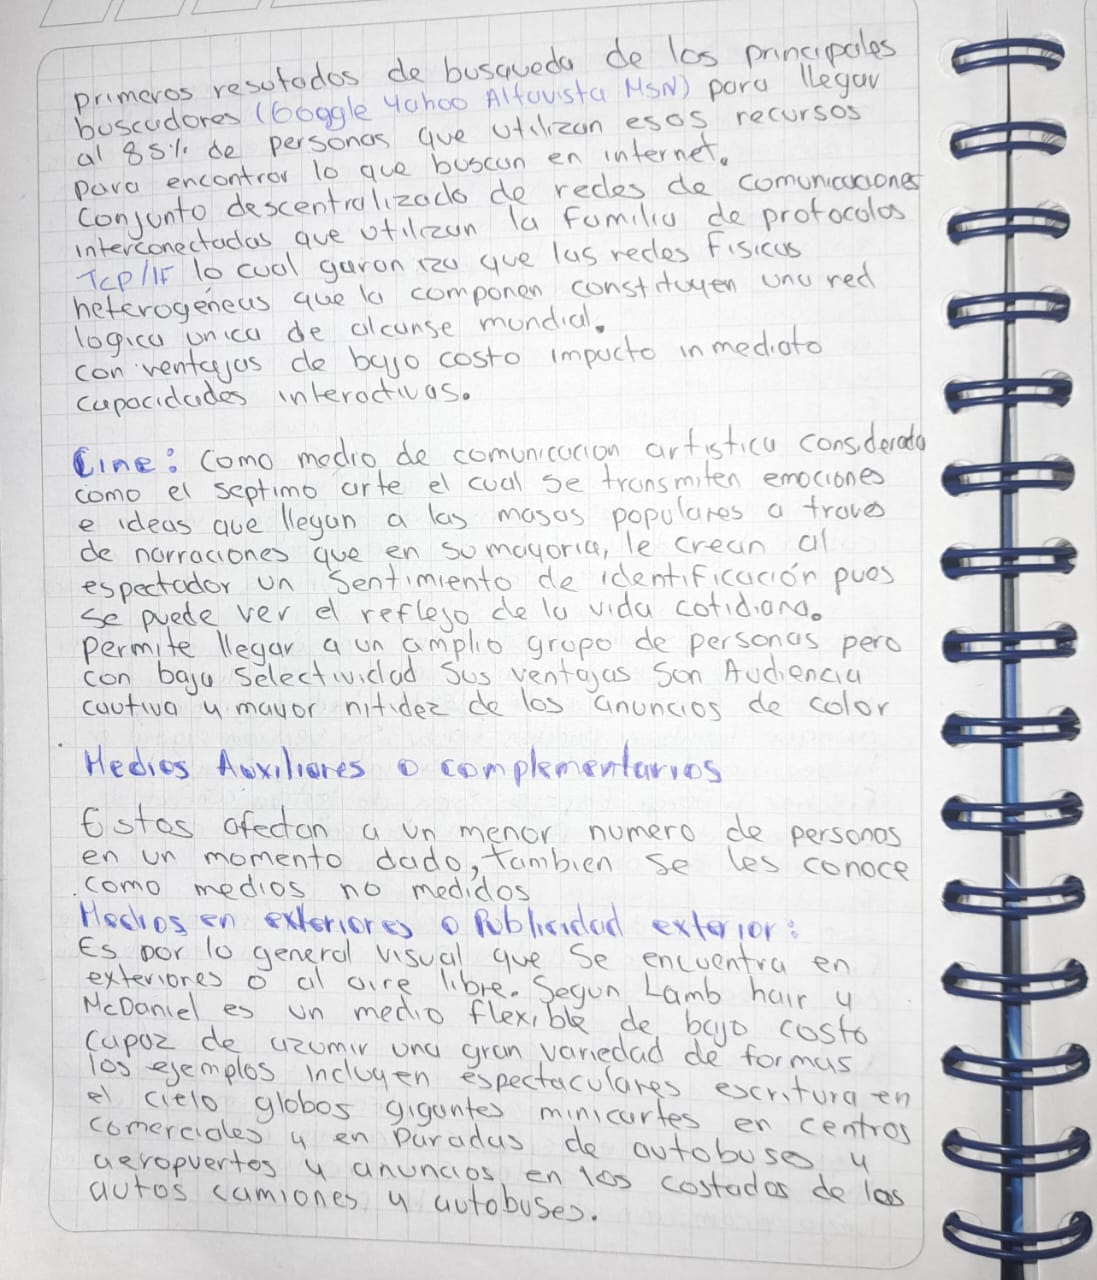 primeros resutados de busqueda de los principales
buscadores (Google Yahoo Altavista MSN) para llegar
al 85% de personas que utilizan esos recursos
para encontrar lo que buscan en internet.
Conjunto descentralizado de redes de comunicaciones
interconectadas que utilizan la familia de protocolos
TCP/IF lo cual garan iza que las redes fisicas
heterogéneas que la componen constituyen una red
logica unica de alcanse mundial.
con ventajas de bajo costo impacto inmediato
capacidades interactivas.
Cine: como medio de comunicacion artistica considerada
como el septimo arte el cual se transmiten emociones
e ideas que llegan a las masas populares a traves
de narraciones que en su mayoria, le crean al
espectador un sentimiento de identificación pues
se puede ver el reflejo de la vida cotidiana.
permite llegar a un amplio grupo de personas pero
con baja selectividad sus ventajas son Audiencia
cautiva y mayor nitidez de los anuncios de color
Medios Auxiliares o complementarios
Estos afectan a un menor numero de personas
en un momento dado, tambien se les conoce
como medios no medidos
Medios en exteriores o Publicidad exterior:
Es por lo general visual que se encuentra en
exteriores o al aire libre. Segun Lamb hair y
McDaniel es un medio flexible de bajo costo
capaz de azumir una gran variedad de formas
los ejemplos incluyen espectaculares escritura en
el cielo globos gigantes minicartes en centros
comerciales y en paradas de autobuses y
aeropuertos y anuncios en los costados de los
autos camiones y autobuses.